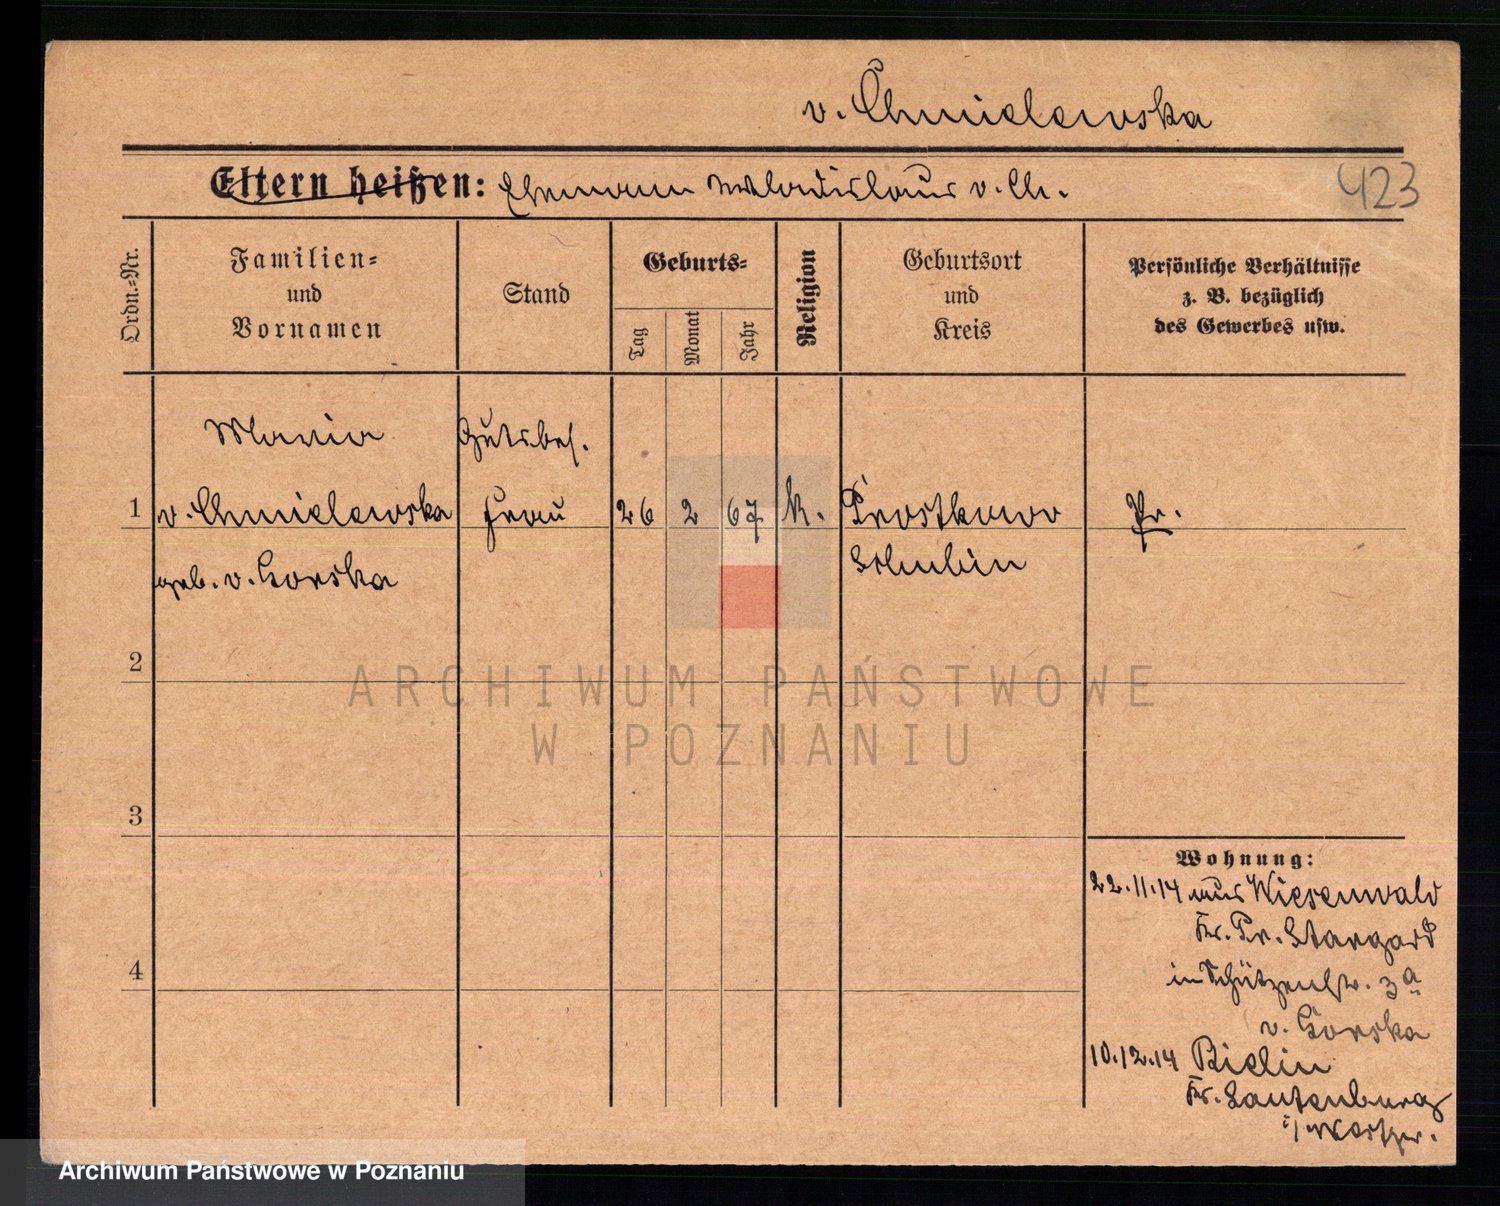 v. Chmielewska
Eltern heißen: Ehemann Wladislaus v. Ch.
423
Ordn.-Nr.
Familien-
und
Vornamen
Stand
Geburts-
Tag
Monat
Jahr
Religion
Geburtsort
und
Kreis
Persönliche Verhältnisse
z. B. bezüglich
des Gewerbes usw.
Maria Gutsbes.
1 v. Chmielewska Frau 26 2 67 k. Prostkowo Pr.
geb. v. Gorska Schubin
2
ARCHIWUM PAŃSTWOWE
W POZNANIU
3
Wohnung:
22.11.14 aus Wiesenwald
Kr. Pr. Stargard
in Schützenstr. 3a
4
v. Gorska
10.12.14 Bielin
Kr. Lautenburg
i/ Westpr.
Archiwum Państwowe w Poznaniu